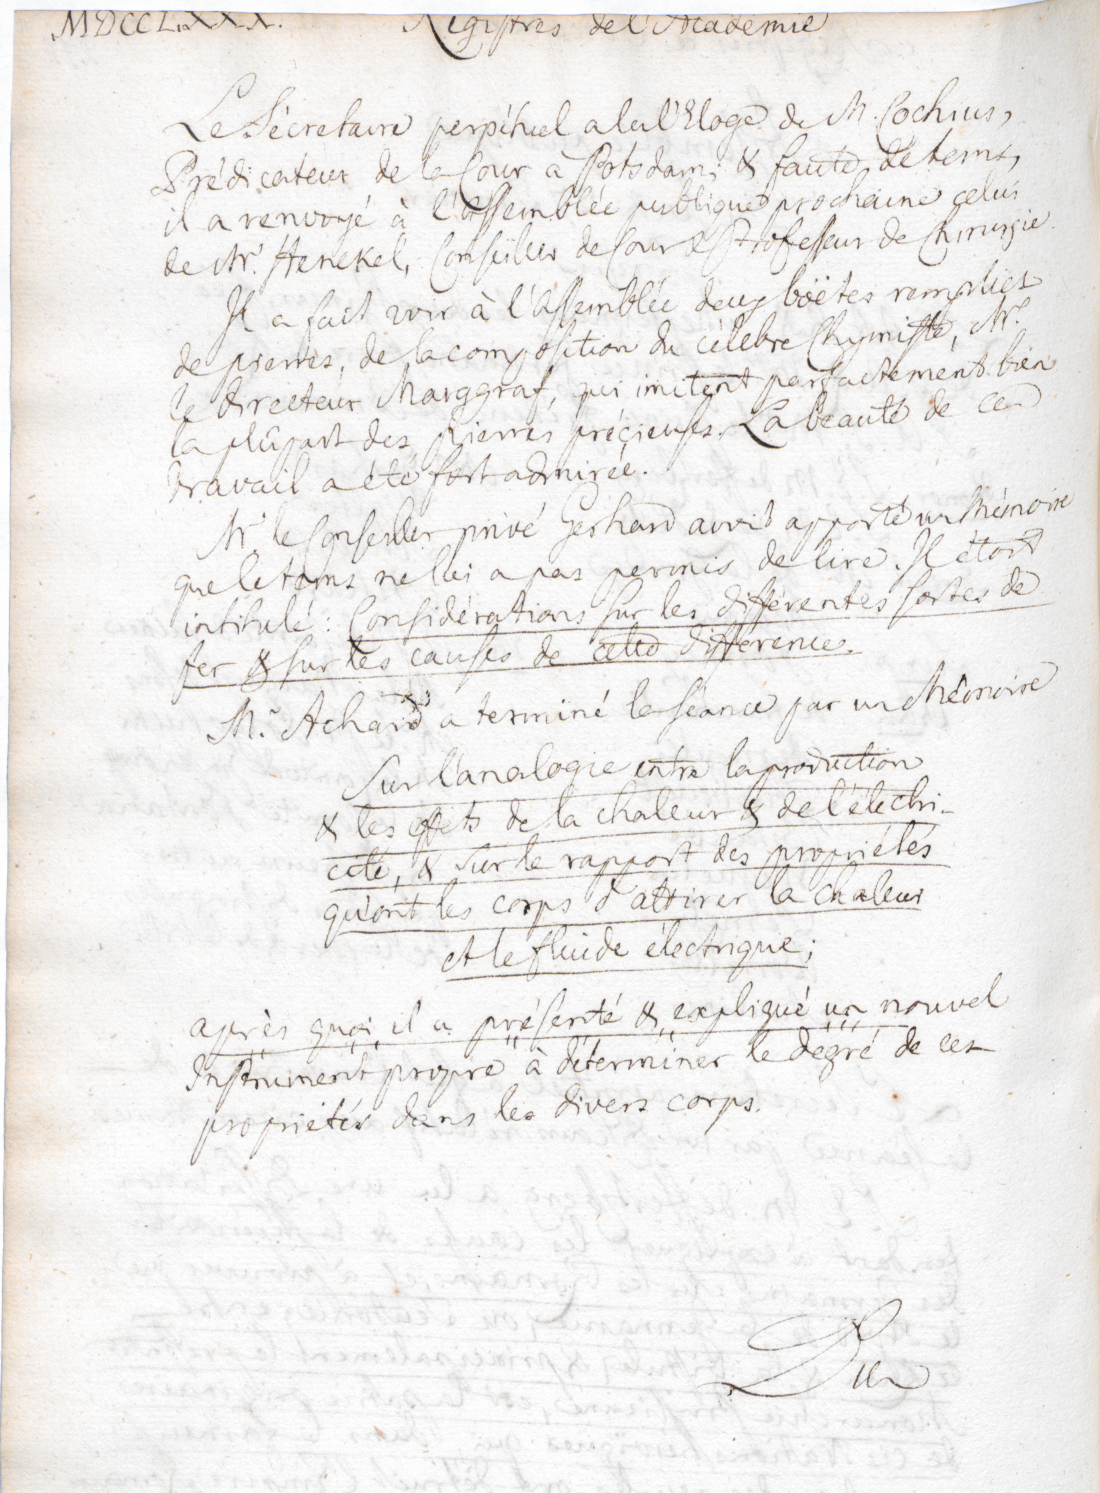 MDCCLXXX. Registres de l'Academie
Le Sécretaire perpétuel a lu l'Eloge de M. Cochius,
Prédicateur de la Cour à Potsdam; & faute de tems,
il a renvoyé à l'Assemblée publique prochaine celui
de Mr. Henckel, Conseiller de Cour & Professeur de Chirurgie.
Il a fait voir à l'Assemblée deux boëtes remplies
de pierres, de la composition du célebre Chymiste, Mr.
le directeur Marggraf, qui imitent parfaitement bien
la plûpart des pierres précieuses. La beauté de ce
travail a été fort admirée.
Mr. le Conseiller privé Gerhard avoit apporté un Mémoire
que le tems ne lui a pas permis de lire. Il étoit
intitulé: Considérations sur les différentes sortes de
fer & sur les causes de cette différence.
M. Achard a terminé la séance par un Mémoire
Sur l'analogie entre la production
& les effets de la chaleur & de l'électri-
cité, & sur le rapport des propriétés
qu'ont les corps d'attirer la chaleur
et le fluide électrique;
après quoi, il a présenté & expliqué un nouvel
Instrument propre à déterminer le degré de ces
propriétés dans les divers corps.